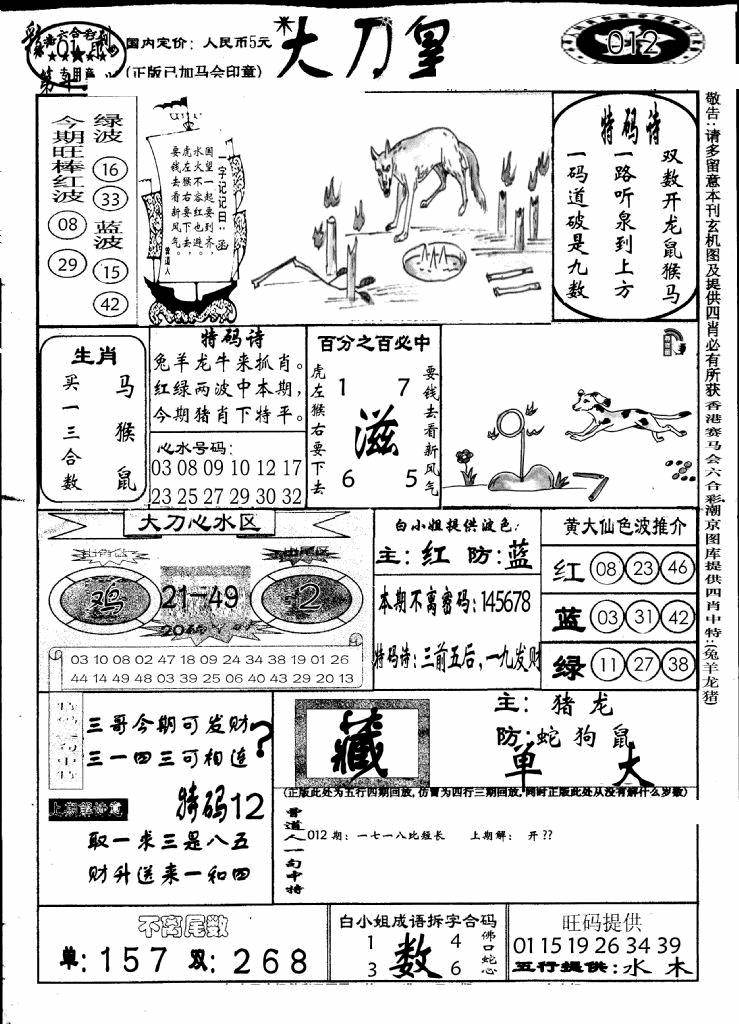 彩
香港六合彩
01
专用章
国内定价：人民币5元
(正版已加马会印章)
大刀皇
012
今期旺棒红波
08
29
绿波
16
33
蓝波
15
42
一字记记曰：函
国望一起要到齐，
水火不容红也避。
虎左猴右要下去，
要钱去看新风气。
曾道人
特码诗
双数开龙鼠猴马
一路听泉到上方
一码道破是九数
敬告：请多留意本刊玄机图及提供四肖必有所获
香港赛马会六合彩潮京图库提供四肖中特：(兔羊龙猪)
生肖
买一三合数
马猴鼠
特码诗
兔羊龙牛来抓肖。
红绿两波中本期，
今期猪肖下特平。
心水号码：
03 08 09 10 12 17
23 25 27 29 30 32
百分之百必中
虎左猴右要下去
1 7
滋
6 5
要钱去看新风气
大刀心水区
鸡
21-49
2
03 10 08 02 47 18 09 24 34 38 19 01 26
44 14 49 48 03 39 25 06 40 43 29 20 13
白小姐提供波色：
主：红 防：蓝
本期不离密码：145678
特码诗：三前五后，一九发财
黄大仙色波推介
红 08 23 46
蓝 03 31 42
绿 11 27 38
三哥今期可发财
三一四三可相连
?
特码12
取一求三是八五
财升送来一和四
藏
主：猪龙
防：蛇狗鼠
单 大
(正版此处为五行四期回放，仿冒为四行三期回放，同时正版此处从没有解什么岁数)
曾道人一句中特
012期：一七一八比短长 上期解： 开??
不离尾数
单：157 双：268
白小姐成语拆字合码
1 4
数
3 6
佛口蛇心
旺码提供
01 15 19 26 34 39
五行提供：水 木